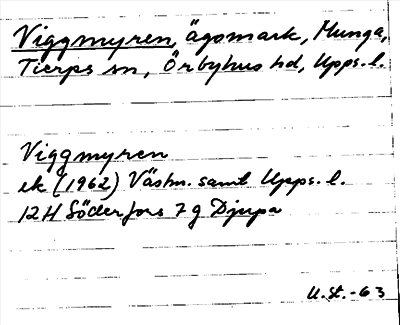 Viggmyren, ägomark, Munga,
Tierps sn, Örbyhus hd, Upps. l.
Viggmyren
ek (1962) Västm. samt Upps. l.
12H Söderfors 7 g Djupa
U.St.-63